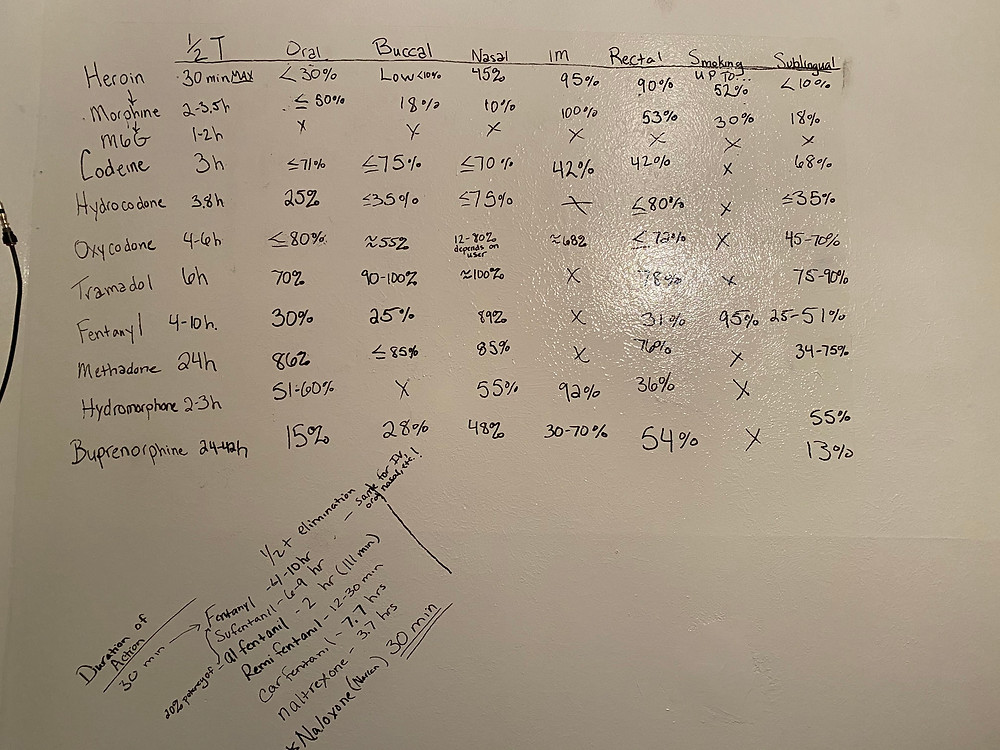 ½ T Oral Buccal Nasal IM Rectal Smoking Sublingual
Heroin 30 min MAX <30% Low <10% 45% 95% 90% UP TO... 52% <10%
Morphine 2-3.5h ≤ 80% 18% 10% 100% 53% 30% 18%
M6G 1-2h X X X X X X X
Codeine 3h ≤71% ≤75% ≤70% 42% 42% X 68%
Hydrocodone 3.8h 25% ≤35% ≤75% X ≤80% X ≤35%
Oxycodone 4-6h ≤80% ≈55% 12-80% depends on user ≈68% ≤72% X 45-70%
Tramadol 6h 70% 90-100% ≈100% X 78% X 75-90%
Fentanyl 4-10h. 30% 25% 89% X 31% 95% 25-51%
Methadone 24h 86% ≤85% 85% X 76% X 34-75%
Hydromorphone 2-3h 51-60% X 55% 92% 36% X 55%
Buprenorphine 24-42h 15% 28% 48% 30-70% 54% X 13%
½ t elimination – same for IV, oral, nasal, etc!
Duration of
Action
30 min → Fentanyl – 4-10 hr
Sufentanil – 6-9 hr
20% potency of alfentanil – 2 hr (111 min)
Remifentanil – 12-30 min
Carfentanil – 7.7 hrs
naltrexone – 3.7 hrs
* Naloxone (Narcan) 30 min